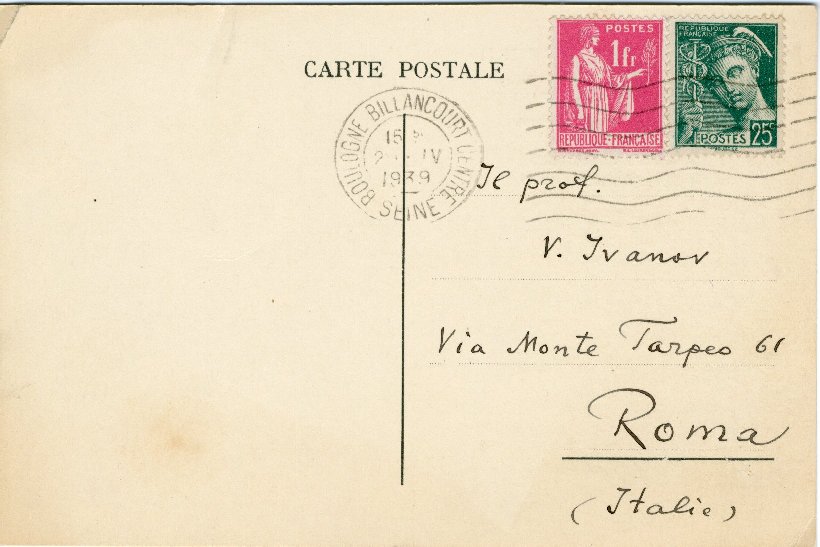 CARTE POSTALE
POSTES
1fr
REPUBLIQUE-FRANÇAISE
REPUBLIQUE
FRANÇAISE
POSTES 25c
BOULOGNE BILLANCOURT CENTRE
15
IV
1939
SEINE
Il prof.
V. Ivanov
Via Monte Tarpeo 61
Roma
(Italie)